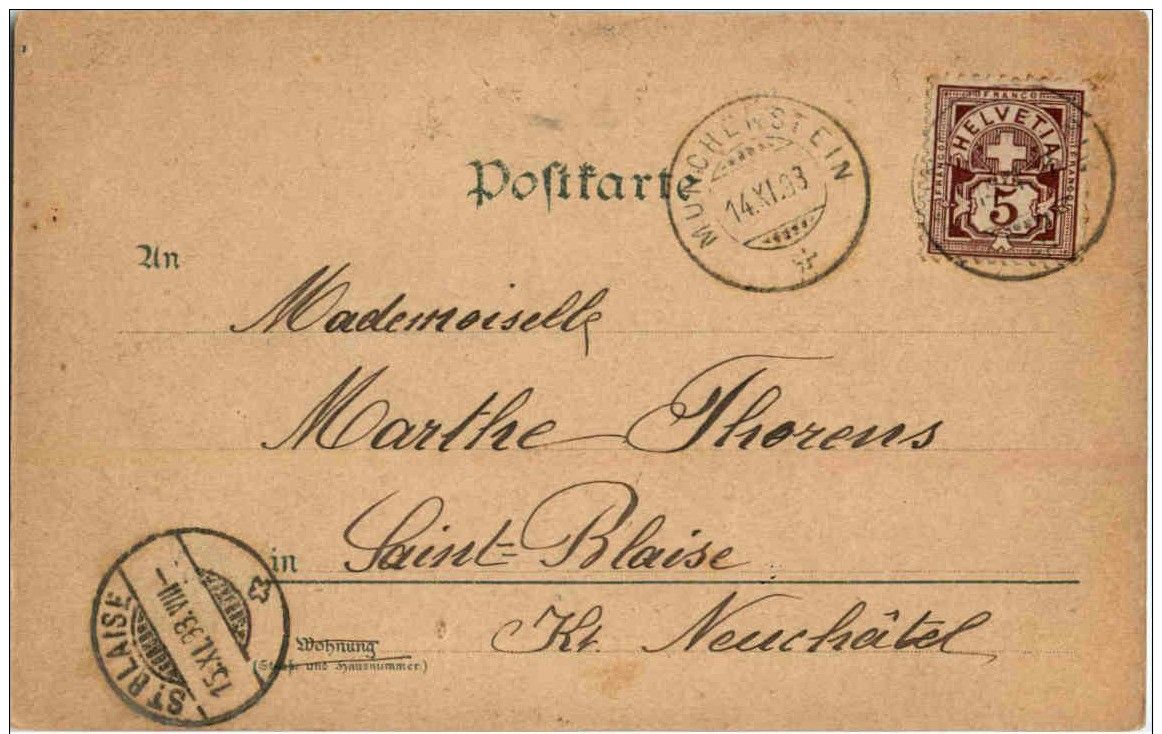 FRANCO
HELVETIA
FRANCO FRANCO
5
MÜNCHENSTEIN
14.XI.93
Postkarte
An
Mademoiselle
Marthe Thorens
in Saint-Blaise
Kt. Neuchâtel
Wohnung
(Straße und Hausnummer.)
ST. BLAISE
15.XI.93.VIII